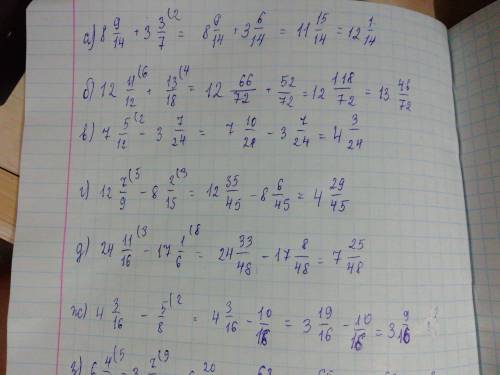 а) 8 9/14 + 3 3/7 (2 = 8 9/14 + 3 6/14 = 11 15/14 = 12 1/14
б) 12 11/12 (6 + 13/18 (4 = 12 66/72 + 52/72 = 12 118/72 = 13 46/72
в) 7 5/12 (2 - 3 7/24 = 7 10/24 - 3 7/24 = 4 3/24
г) 12 7/9 (5 - 8 2/15 (3 = 12 35/45 - 8 6/45 = 4 29/45
д) 24 11/16 (3 - 17 1/6 (8 = 24 33/48 - 17 8/48 = 7 25/48
ж) 4 3/16 - 5/8 (2 = 4 3/16 - 10/16 = 3 19/16 - 10/16 = 3 9/16